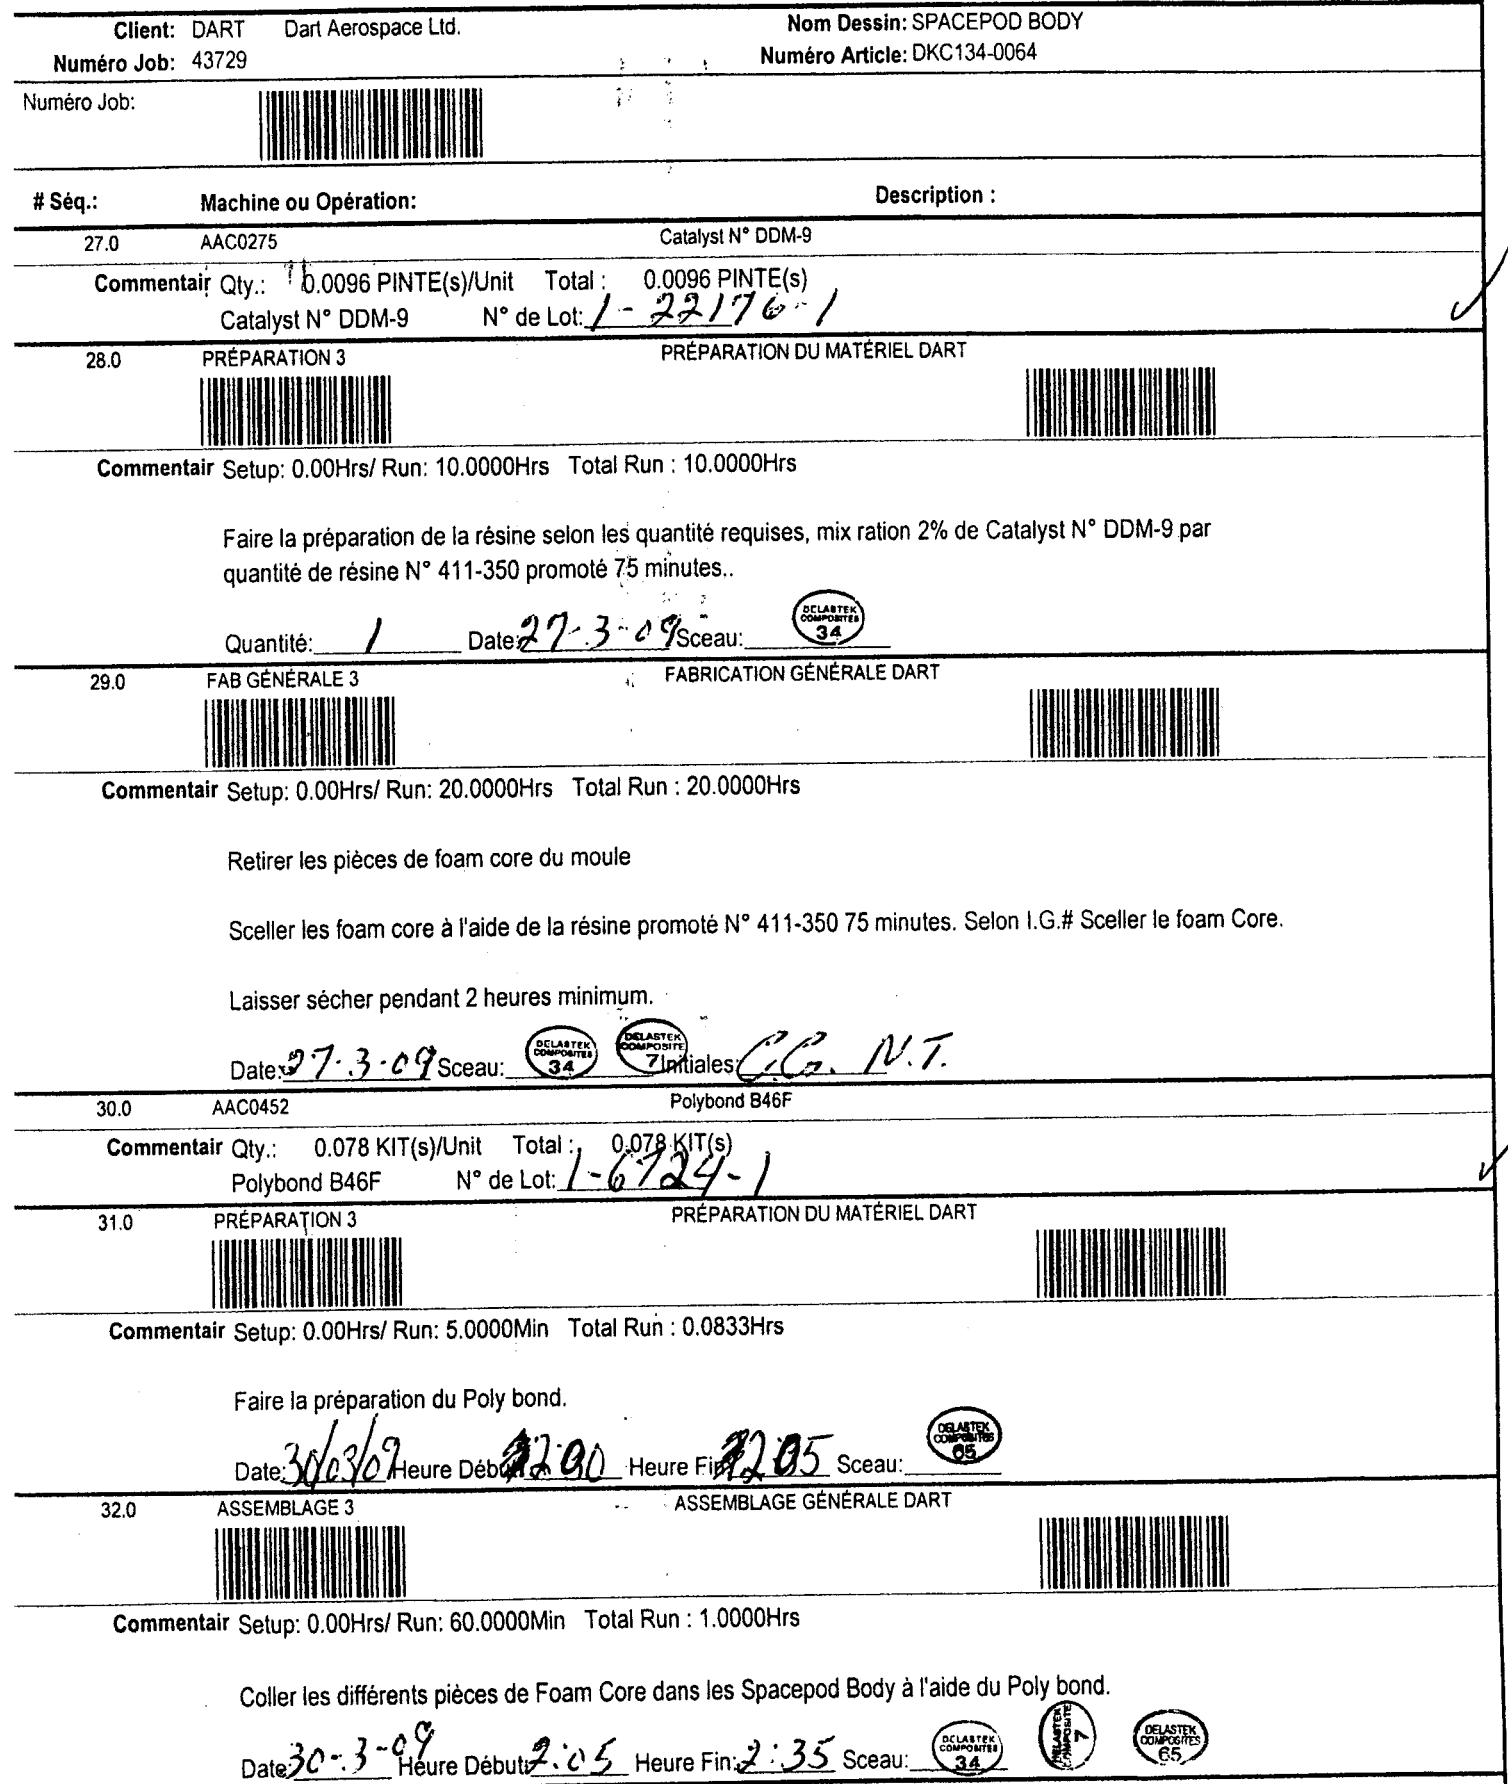 Client: DART Dart Aerospace Ltd. Nom Dessin: SPACEPOD BODY
Numéro Job: 43729 Numéro Article: DKC134-0064
Numéro Job:
# Séq.: Machine ou Opération: Description :
27.0 AAC0275 Catalyst N° DDM-9
Commentair Qty.: 0.0096 PINTE(s)/Unit Total : 0.0096 PINTE(s)
Catalyst N° DDM-9 N° de Lot: 1-22176-1
28.0 PRÉPARATION 3 PRÉPARATION DU MATÉRIEL DART
Commentair Setup: 0.00Hrs/ Run: 10.0000Hrs Total Run : 10.0000Hrs
Faire la préparation de la résine selon les quantité requises, mix ration 2% de Catalyst N° DDM-9 par
quantité de résine N° 411-350 promoté 75 minutes..
Quantité: 1 Date: 27-3-09 Sceau: DELASTEK COMPOSITES 34
29.0 FAB GÉNÉRALE 3 FABRICATION GÉNÉRALE DART
Commentair Setup: 0.00Hrs/ Run: 20.0000Hrs Total Run : 20.0000Hrs
Retirer les pièces de foam core du moule
Sceller les foam core à l'aide de la résine promoté N° 411-350 75 minutes. Selon I.G.# Sceller le foam Core.
Laisser sécher pendant 2 heures minimum.
Date: 27-3-09 Sceau: DELASTEK COMPOSITES 34 DELASTEK COMPOSITE 7 Initiales: C.G. N.T.
30.0 AAC0452 Polybond B46F
Commentair Qty.: 0.078 KIT(s)/Unit Total : 0.078 KIT(s)
Polybond B46F N° de Lot: 1-6724-1
31.0 PRÉPARATION 3 PRÉPARATION DU MATÉRIEL DART
Commentair Setup: 0.00Hrs/ Run: 5.0000Min Total Run : 0.0833Hrs
Faire la préparation du Poly bond.
Date: 30/03/09 Heure Début: Heure Fin: Sceau: DELASTEK COMPOSITES 65
32.0 ASSEMBLAGE 3 ASSEMBLAGE GÉNÉRALE DART
Commentair Setup: 0.00Hrs/ Run: 60.0000Min Total Run : 1.0000Hrs
Coller les différents pièces de Foam Core dans les Spacepod Body à l'aide du Poly bond.
Date: 30-3-09 Heure Début: 2:05 Heure Fin: 2:35 Sceau: DELASTEK COMPOSITES 34 DELASTEK COMPOSITE 7 DELASTEK COMPOSITES 65